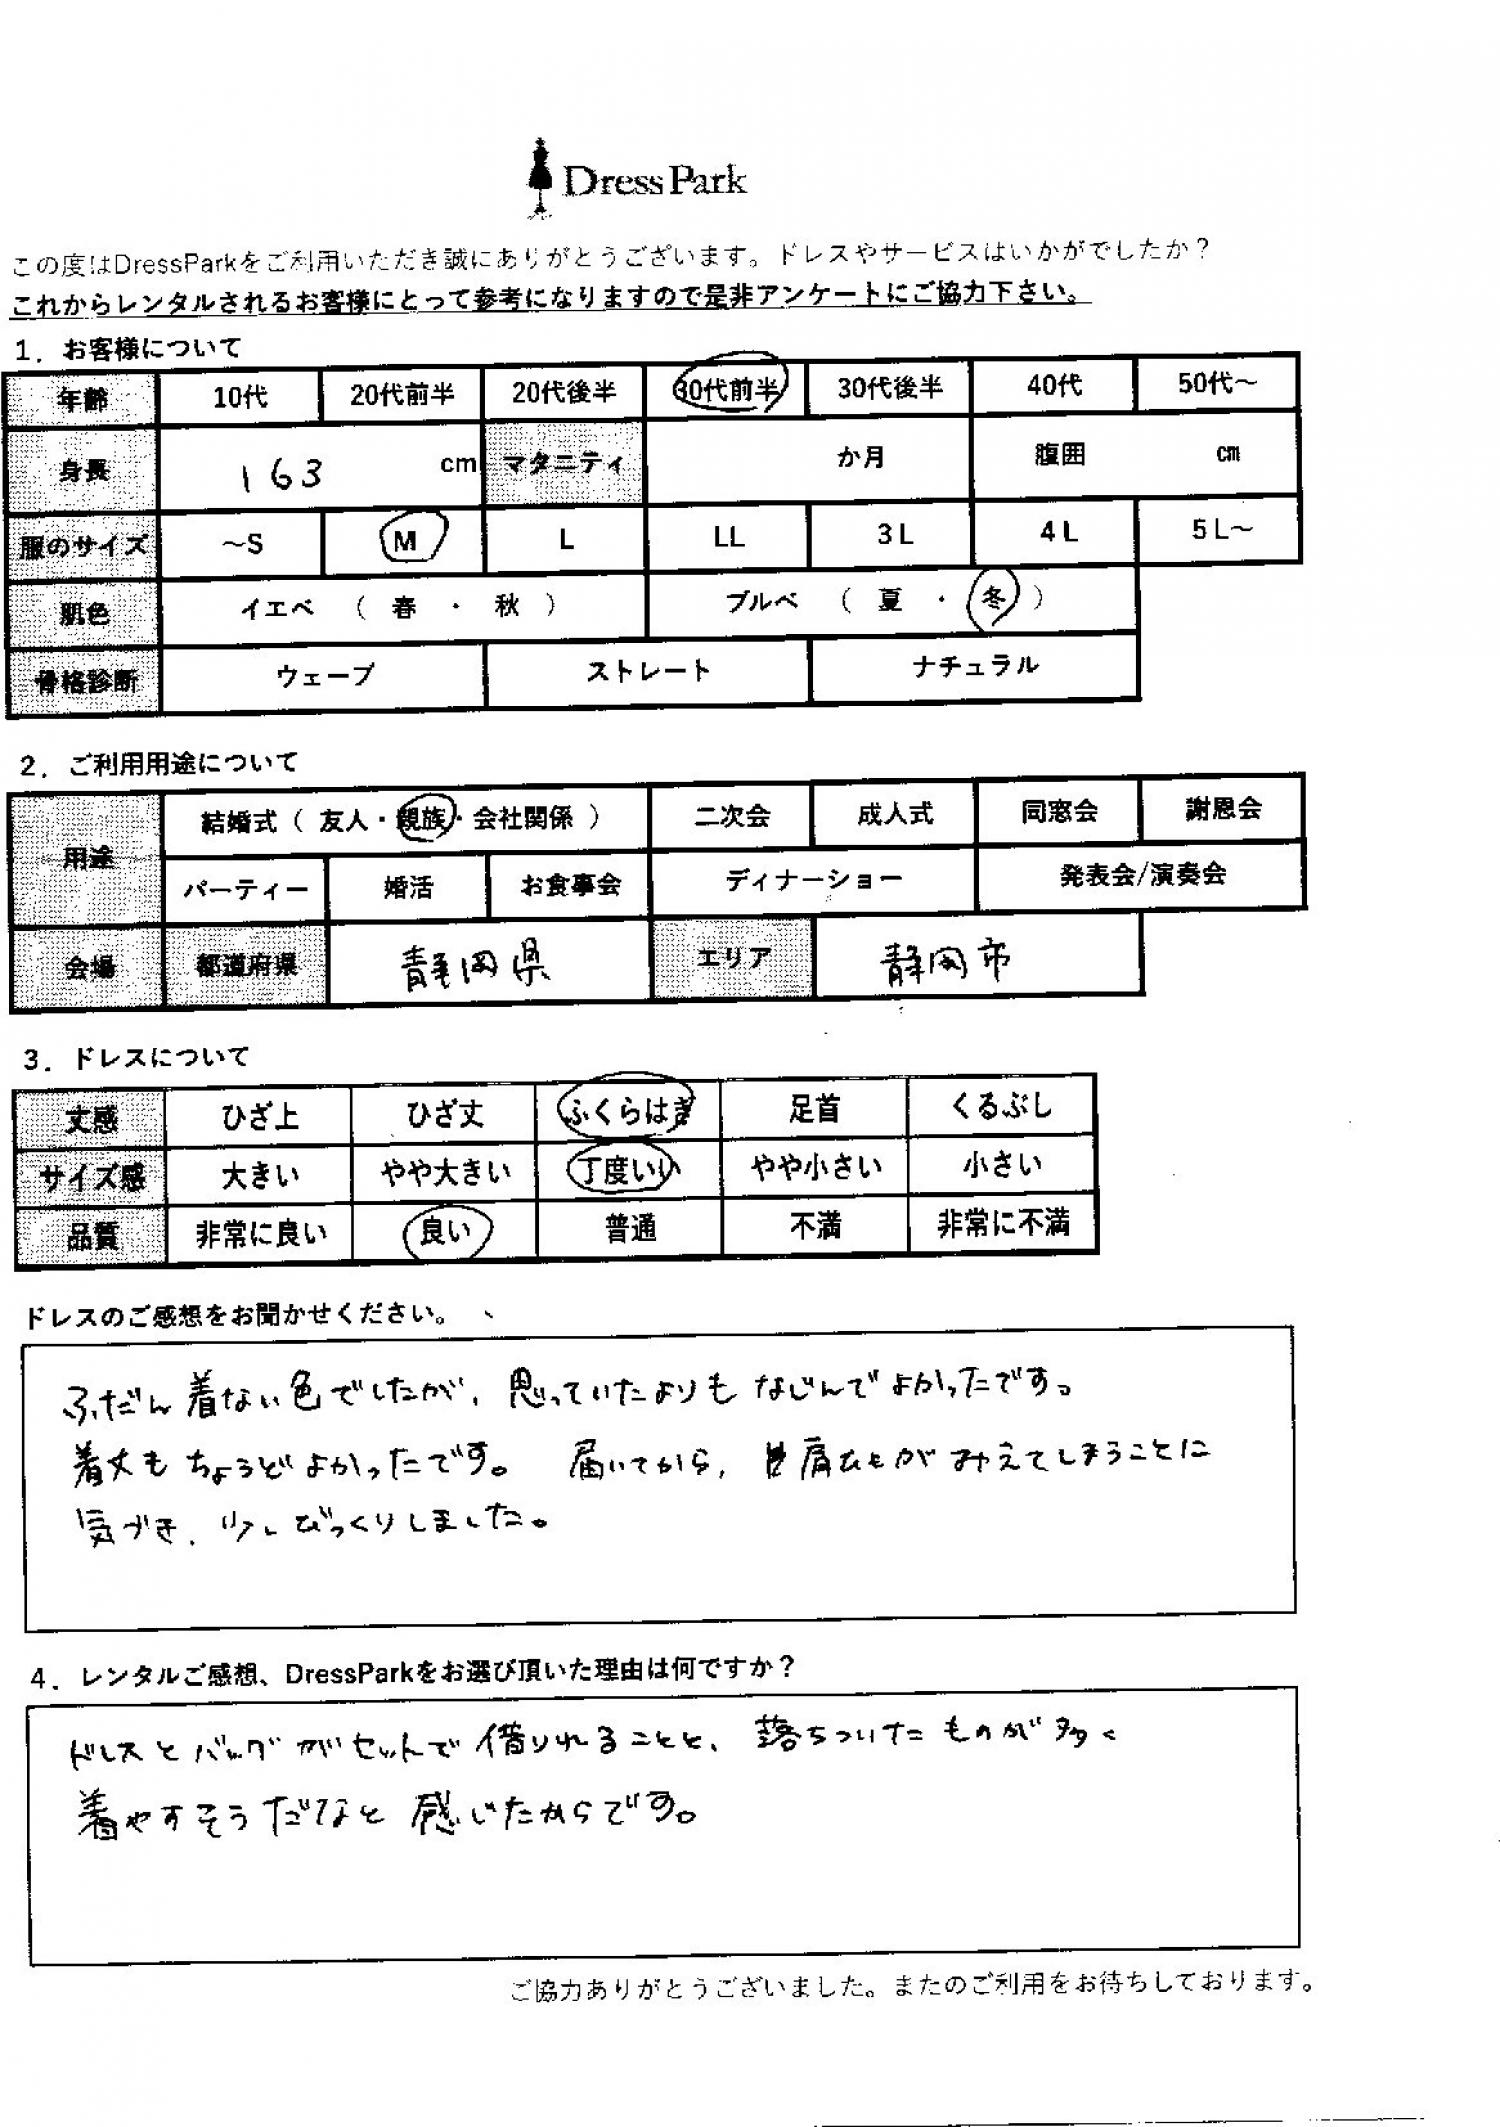 Dress Park
この度はDressParkをご利用いただき誠にありがとうございます。ドレスやサービスはいかがでしたか？
これからレンタルされるお客様にとって参考になりますので是非アンケートにご協力下さい。
1．お客様について
年齢 10代 20代前半 20代後半 30代前半 30代後半 40代 50代～
身長 163 cm マタニティ か月 腹囲 cm
服のサイズ ～S M L LL 3L 4L 5L～
肌色 イエベ （ 春 ・ 秋 ） ブルベ （ 夏 ・ 冬 ）
骨格診断 ウェーブ ストレート ナチュラル
2．ご利用用途について
用途 結婚式（ 友人・親族・会社関係 ） 二次会 成人式 同窓会 謝恩会
パーティー 婚活 お食事会 ディナーショー 発表会/演奏会
会場 都道府県 静岡県 エリア 静岡市
3．ドレスについて
丈感 ひざ上 ひざ丈 ふくらはぎ 足首 くるぶし
サイズ感 大きい やや大きい 丁度いい やや小さい 小さい
品質 非常に良い 良い 普通 不満 非常に不満
ドレスのご感想をお聞かせください。
ふだん着ない色でしたが、思っていたよりもなじんでよかったです。
着丈もちょうどよかったです。 届いてから、肩ひもがみえてしまうことに
気づき、少しびっくりしました。
4．レンタルご感想、DressParkをお選び頂いた理由は何ですか？
ドレスとバッグがセットで借りれることと、落ちついたものが多く
着やすそうだなと感じたからです。
ご協力ありがとうございました。またのご利用をお待ちしております。